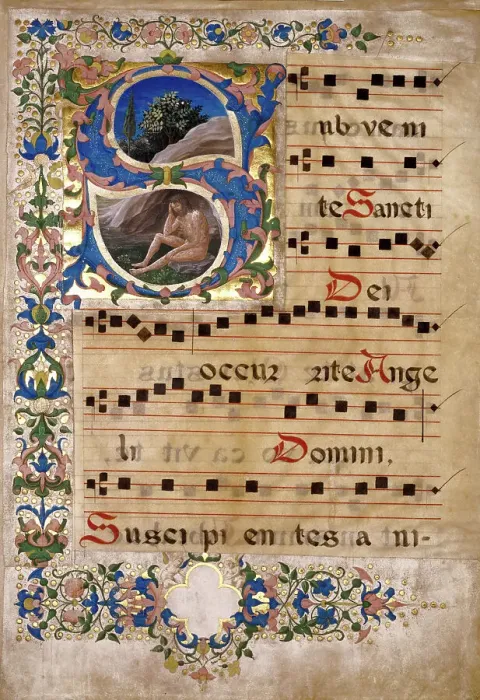 Subveni
te Sancti
Dei
occur rite Ange
li Domini,
Suscipi en tes a ni-